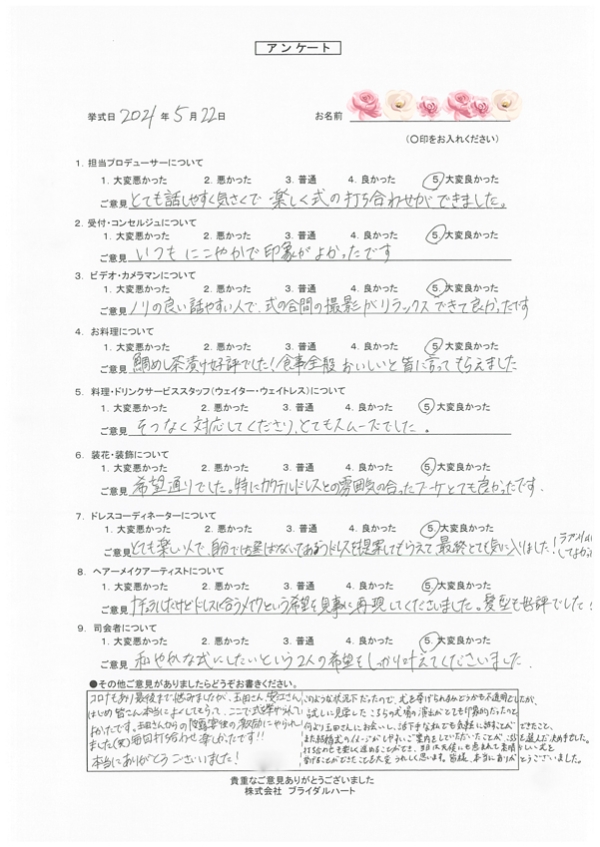 アンケート
挙式日 2021年 5月 22日 お名前
(○印をお入れください)
1. 担当プロデューサーについて
1. 大変悪かった 2. 悪かった 3. 普通 4. 良かった 5. 大変良かった
ご意見 とても話しやすく気さくで 楽しく式の打ち合わせができました。
2. 受付・コンセルジュについて
1. 大変悪かった 2. 悪かった 3. 普通 4. 良かった 5. 大変良かった
ご意見 いつも にこやかで印象がよかったです
3. ビデオ・カメラマンについて
1. 大変悪かった 2. 悪かった 3. 普通 4. 良かった 5. 大変良かった
ご意見 ノリの良い話やすい人で、式の合間の撮影がリラックスできて良かったです
4. お料理について
1. 大変悪かった 2. 悪かった 3. 普通 4. 良かった 5. 大変良かった
ご意見 鯛めし茶漬け好評でした!食事全般 おいしいと皆に言ってもらえました
5. 料理・ドリンクサービススタッフ(ウェイター・ウェイトレス)について
1. 大変悪かった 2. 悪かった 3. 普通 4. 良かった 5. 大変良かった
ご意見 そつなく対応してくださり、とてもスムーズでした。
6. 装花・装飾について
1. 大変悪かった 2. 悪かった 3. 普通 4. 良かった 5. 大変良かった
ご意見 希望通りでした。特にカクテルドレスとの雰囲気の合ったブーケとても良かったです.
7. ドレスコーディネーターについて
1. 大変悪かった 2. 悪かった 3. 普通 4. 良かった 5. 大変良かった
ご意見 とても楽しい人で、自分では選ばないであろうドレスを提案してもらえて、最終とても気に入りました!
8. ヘアーメイクアーティストについて
1. 大変悪かった 2. 悪かった 3. 普通 4. 良かった 5. 大変良かった
ご意見 ナチュラルだけどドレスに合うメイクという希望を見事に再現してくださいました。髪型も好評でした!
9. 司会者について
1. 大変悪かった 2. 悪かった 3. 普通 4. 良かった 5. 大変良かった
ご意見 和やかな式にしたいという2人の希望をしっかり叶えてくださいました
●その他ご意見がありましたらどうぞお書きください。
コロナもあり最後まで悩みましたが、玉田さん、
はじめ皆さん本当によくしてもらって、ここで式を挙げられて
よかったです。玉田さんからの
ました(笑)毎回打ち合わせ楽しかったです!!
本当にありがとうございました!
このような状況下だったので、式を挙げられるかどうかも不透明でしたが、
貴重なご意見ありがとうございました
株式会社 ブライダルハート